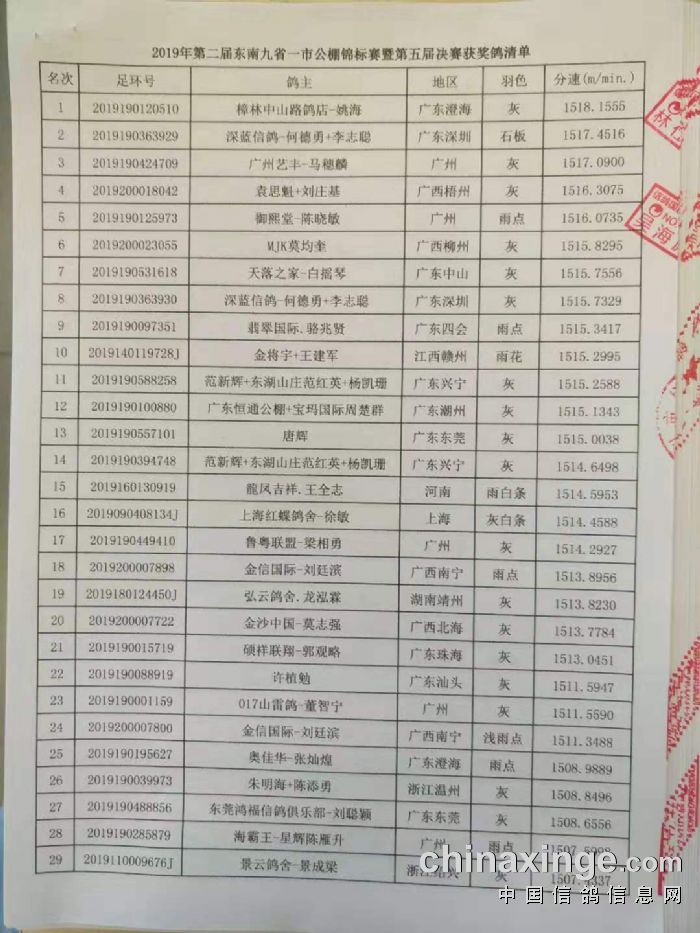 2019年第二届东南九省一市公棚锦标赛暨第五届决赛获奖鸽清单
名次 足环号 鸽主 地区 羽色 分速(m/min.)
1 2019190120510 樟林中山路鸽店-姚海 广东澄海 灰 1518.1555
2 2019190363929 深蓝信鸽-何德勇+李志聪 广东深圳 石板 1517.4516
3 2019190424709 广州艺丰-马穗麟 广州 灰 1517.0900
4 2019200018042 袁思魁+刘庄基 广西梧州 灰 1516.3075
5 2019190125973 御熙堂-陈晓敏 广州 雨点 1516.0735
6 2019200023055 MJK莫均奎 广西柳州 灰 1515.8295
7 2019190531618 天落之家-白摇琴 广东中山 灰 1515.7556
8 2019190363930 深蓝信鸽-何德勇+李志聪 广东深圳 灰 1515.7329
9 2019190097351 翡翠国际.骆兆贤 广东四会 雨点 1515.3417
10 2019140119728J 金将宇+王建军 江西赣州 雨花 1515.2995
11 2019190588258 范新辉+东湖山庄范红英+杨凯珊 广东兴宁 灰 1515.2588
12 2019190100880 广东恒通公棚+宝玛国际周楚群 广东潮州 灰 1515.1343
13 2019190557101 唐辉 广东东莞 灰 1515.0038
14 2019190394748 范新辉+东湖山庄范红英+杨凯珊 广东兴宁 灰 1514.6498
15 2019160130919 龍凤吉祥.王全志 河南 雨白条 1514.5953
16 2019090408134J 上海红蝶鸽舍-徐敏 上海 灰白条 1514.4588
17 2019190449410 鲁粤联盟-梁相勇 广州 灰 1514.2927
18 2019200007898 金信国际-刘廷滨 广西南宁 雨点 1513.8956
19 2019180124450J 弘云鸽舍.龙泓霖 湖南靖州 灰 1513.8230
20 2019200007722 金沙中国-莫志强 广西北海 灰 1513.7784
21 2019190015719 硕祥联翔-郭观略 广东珠海 灰 1513.0451
22 2019190088919 许植勉 广东汕头 灰 1511.5947
23 2019190001159 017山雷鸽-董智宁 广州 灰 1511.5590
24 2019200007800 金信国际-刘廷滨 广西南宁 浅雨点 1511.3488
25 2019190195627 奥佳华-张灿煌 广东澄海 雨点 1508.9889
26 2019190039973 朱明海+陈添勇 浙江温州 灰 1508.8496
27 2019190488856 东莞鸿福信鸽俱乐部-刘聪颖 广东东莞 灰 1508.6556
28 2019190285879 海霸王-星辉陈雁升 广州 雨点
29 2019110009676J 景云鸽舍-景成梁 灰
chinaxinge.com
中国信鸽信息网